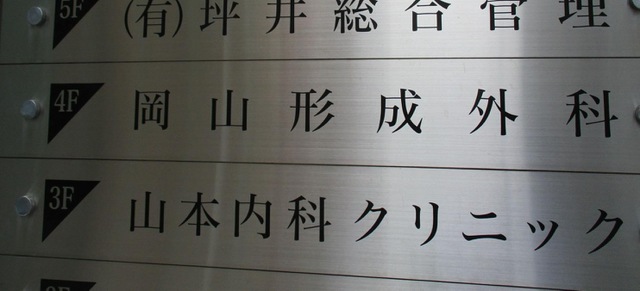 5F (有)坪井総合管理
4F 岡山形成外科
3F 山本内科クリニック